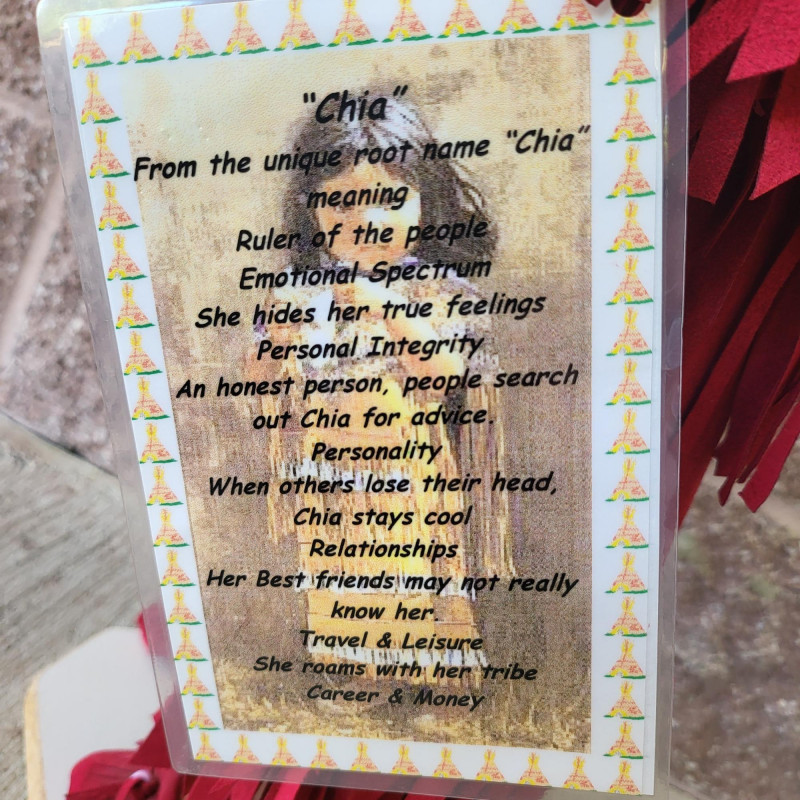 "Chia"
From the unique root name "Chia"
meaning
Ruler of the people
Emotional Spectrum
She hides her true feelings
Personal Integrity
An honest person, people search
out Chia for advice.
Personality
When others lose their head,
Chia stays cool
Relationships
Her Best friends may not really
know her.
Travel & Leisure
She roams with her tribe
Career & Money